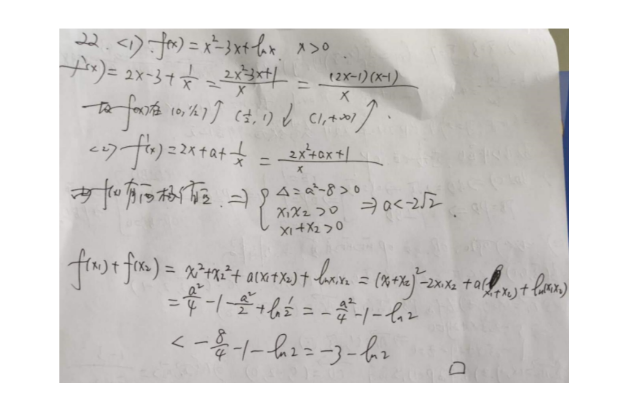 22. <1> f(x) = x²-3x+lnx. x>0
f'(x) = 2x-3+1/x = (2x²-3x+1)/x = (2x-1)(x-1)/x
f(x)在 (0,1/2)↑ (1/2,1)↓ (1,+∞)↑.
<2> f'(x) = 2x+a+1/x = (2x²+ax+1)/x
由 f(x)有两极值 ⇒ { Δ=a²-8>0 x₁x₂>0 x₁+x₂>0 ⇒ a<-2√2.
f(x₁)+f(x₂) = x₁²+x₂²+a(x₁+x₂)+lnx₁x₂ = (x₁+x₂)²-2x₁x₂+a(x₁+x₂)+ln(x₁x₂)
= a²/4-1-a²/2+ln1/2 = -a²/4-1-ln2
< -8/4-1-ln2 = -3-ln2